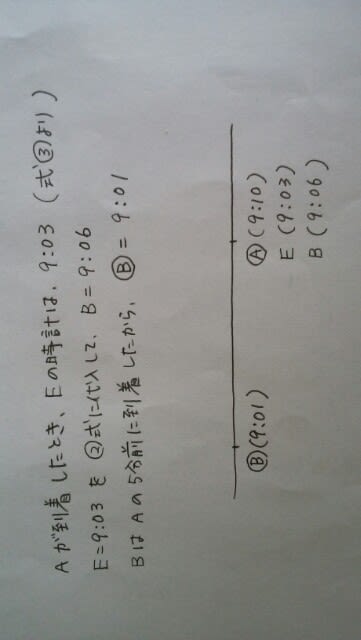 Aが到着したとき、Eの時計は、9:03 (式③より)
E=9:03 を ②式に代入して、B=9:06
BはAの5分前に到着したから、Ⓑ=9:01
Ⓑ(9:01) Ⓐ(9:10)
E (9:03)
B (9:06)